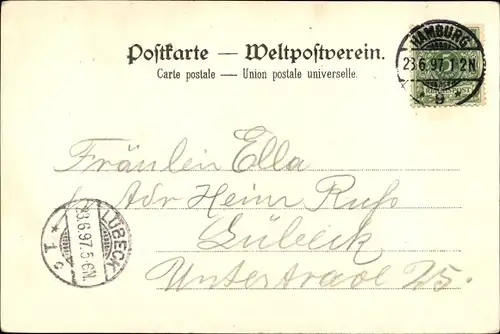 Postkarte — Weltpostverein.
Carte postale — Union postale universelle.
HAMBURG
23.6.97.1-2N.
* 9 *
Fräulein Ella
Adr Heinr Ruß
Lübeck
Untertrave 25.
LÜBECK
23.6.97.5-6N.
* 1 c